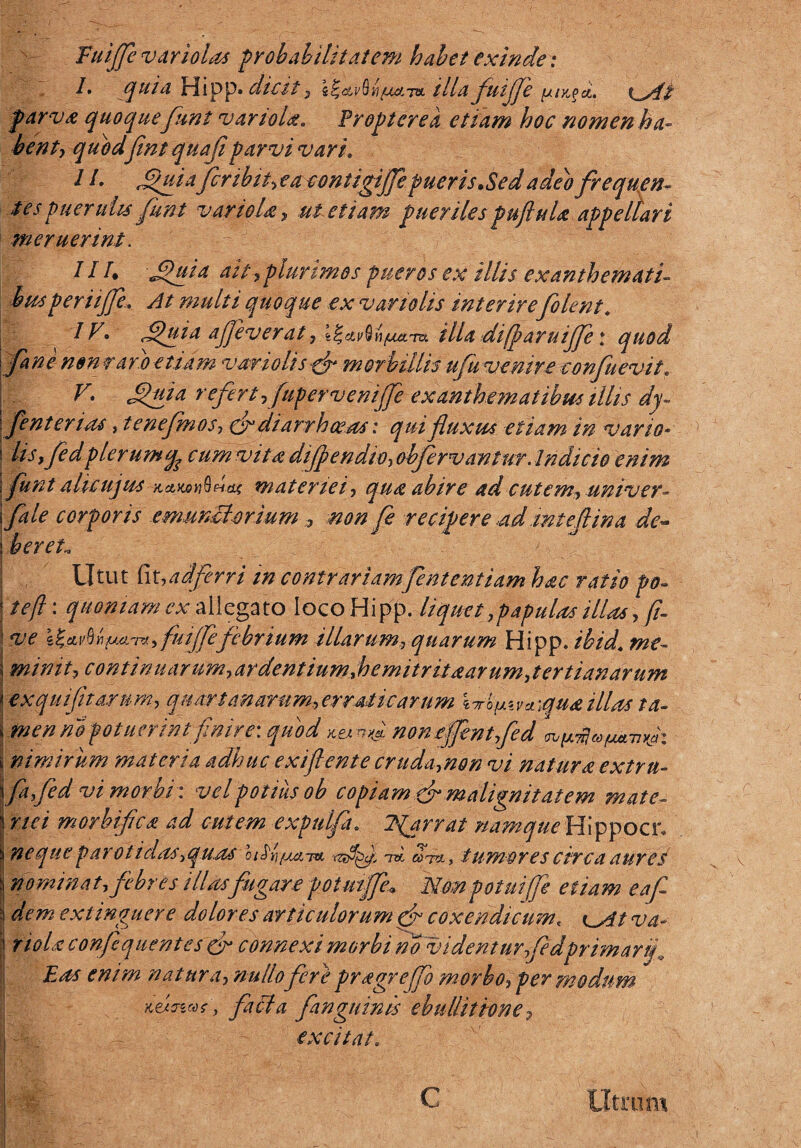 Fuisse variolas probabilitatem habet exinde:
I. quia Hipp. dicit, ἐξανθήματα illa fuisse μικρά. At
parvæ quoque sunt variolæ. Proptereà etiam hoc nomen ha-
bent, quòd sint quasi parvi vari.
II. Quia scribit, ea contigisse pueris. Sed adeò frequen-
tes puerulis sunt variolæ, ut etiam pueriles pustulæ appellari
meruerint.
III. Quia ait, plurimos pueros ex illis exanthemati-
bus periisse. At multi quoque ex variolis interire solent.
IV. Quia asseverat, ἐξανθήματα illa disparuisse: quod
sanè non rarò etiam variolis & morbillis usu venire consuevit.
V. Quia refert, supervenisse exanthematibus illis dy-
senterias, tenesmos, & diarrhœas: qui fluxus etiam in vario-
lis, sed plerumq; cum vitæ dispendio, observantur. Indicio enim
sunt alicujus κακοηθείας materiei, quæ abire ad cutem, univer-
sale corporis emunctorium, non se recipere ad intestina de-
beret.
Utut sit, adferri in contrariam sententiam hæc ratio po-
test: quoniam ex allegato loco Hipp. liquet, papulas illas, si-
ve ἐξανθήματα, fuisse febrium illarum, quarum Hipp. ibid. me-
minit, continuarum, ardentium, hemitritæarum, tertianarum
exquisitarum, quartanarum, erraticarum ἑπόμενα: quæ illas ta-
men nō potuerint finire: quòd κριτικὰ non essent, sed συμπτωματικὰ:
nimirum materia adhuc existente cruda, non vi naturæ extru-
sa, sed vi morbi: vel potiùs ob copiam & malignitatem mate-
riei morbificæ ad cutem expulsa. Narrat namque Hippocr.
neque parotidas, quas οἰδήματα παρὰ τὰ ὦτα, tumores circa aures
nominat, febres illas fugare potuisse. Non potuisse etiam eas-
dem extinguere dolores articulorum & coxendicum. At va-
riolæ consequentes & connexi morbi nō videntur, sed primarij.
Eas enim natura, nullo ferè prægresso morbo, per modum
κρίσεως, facta sanguinis ebullitione,
excitat.
C Utrum